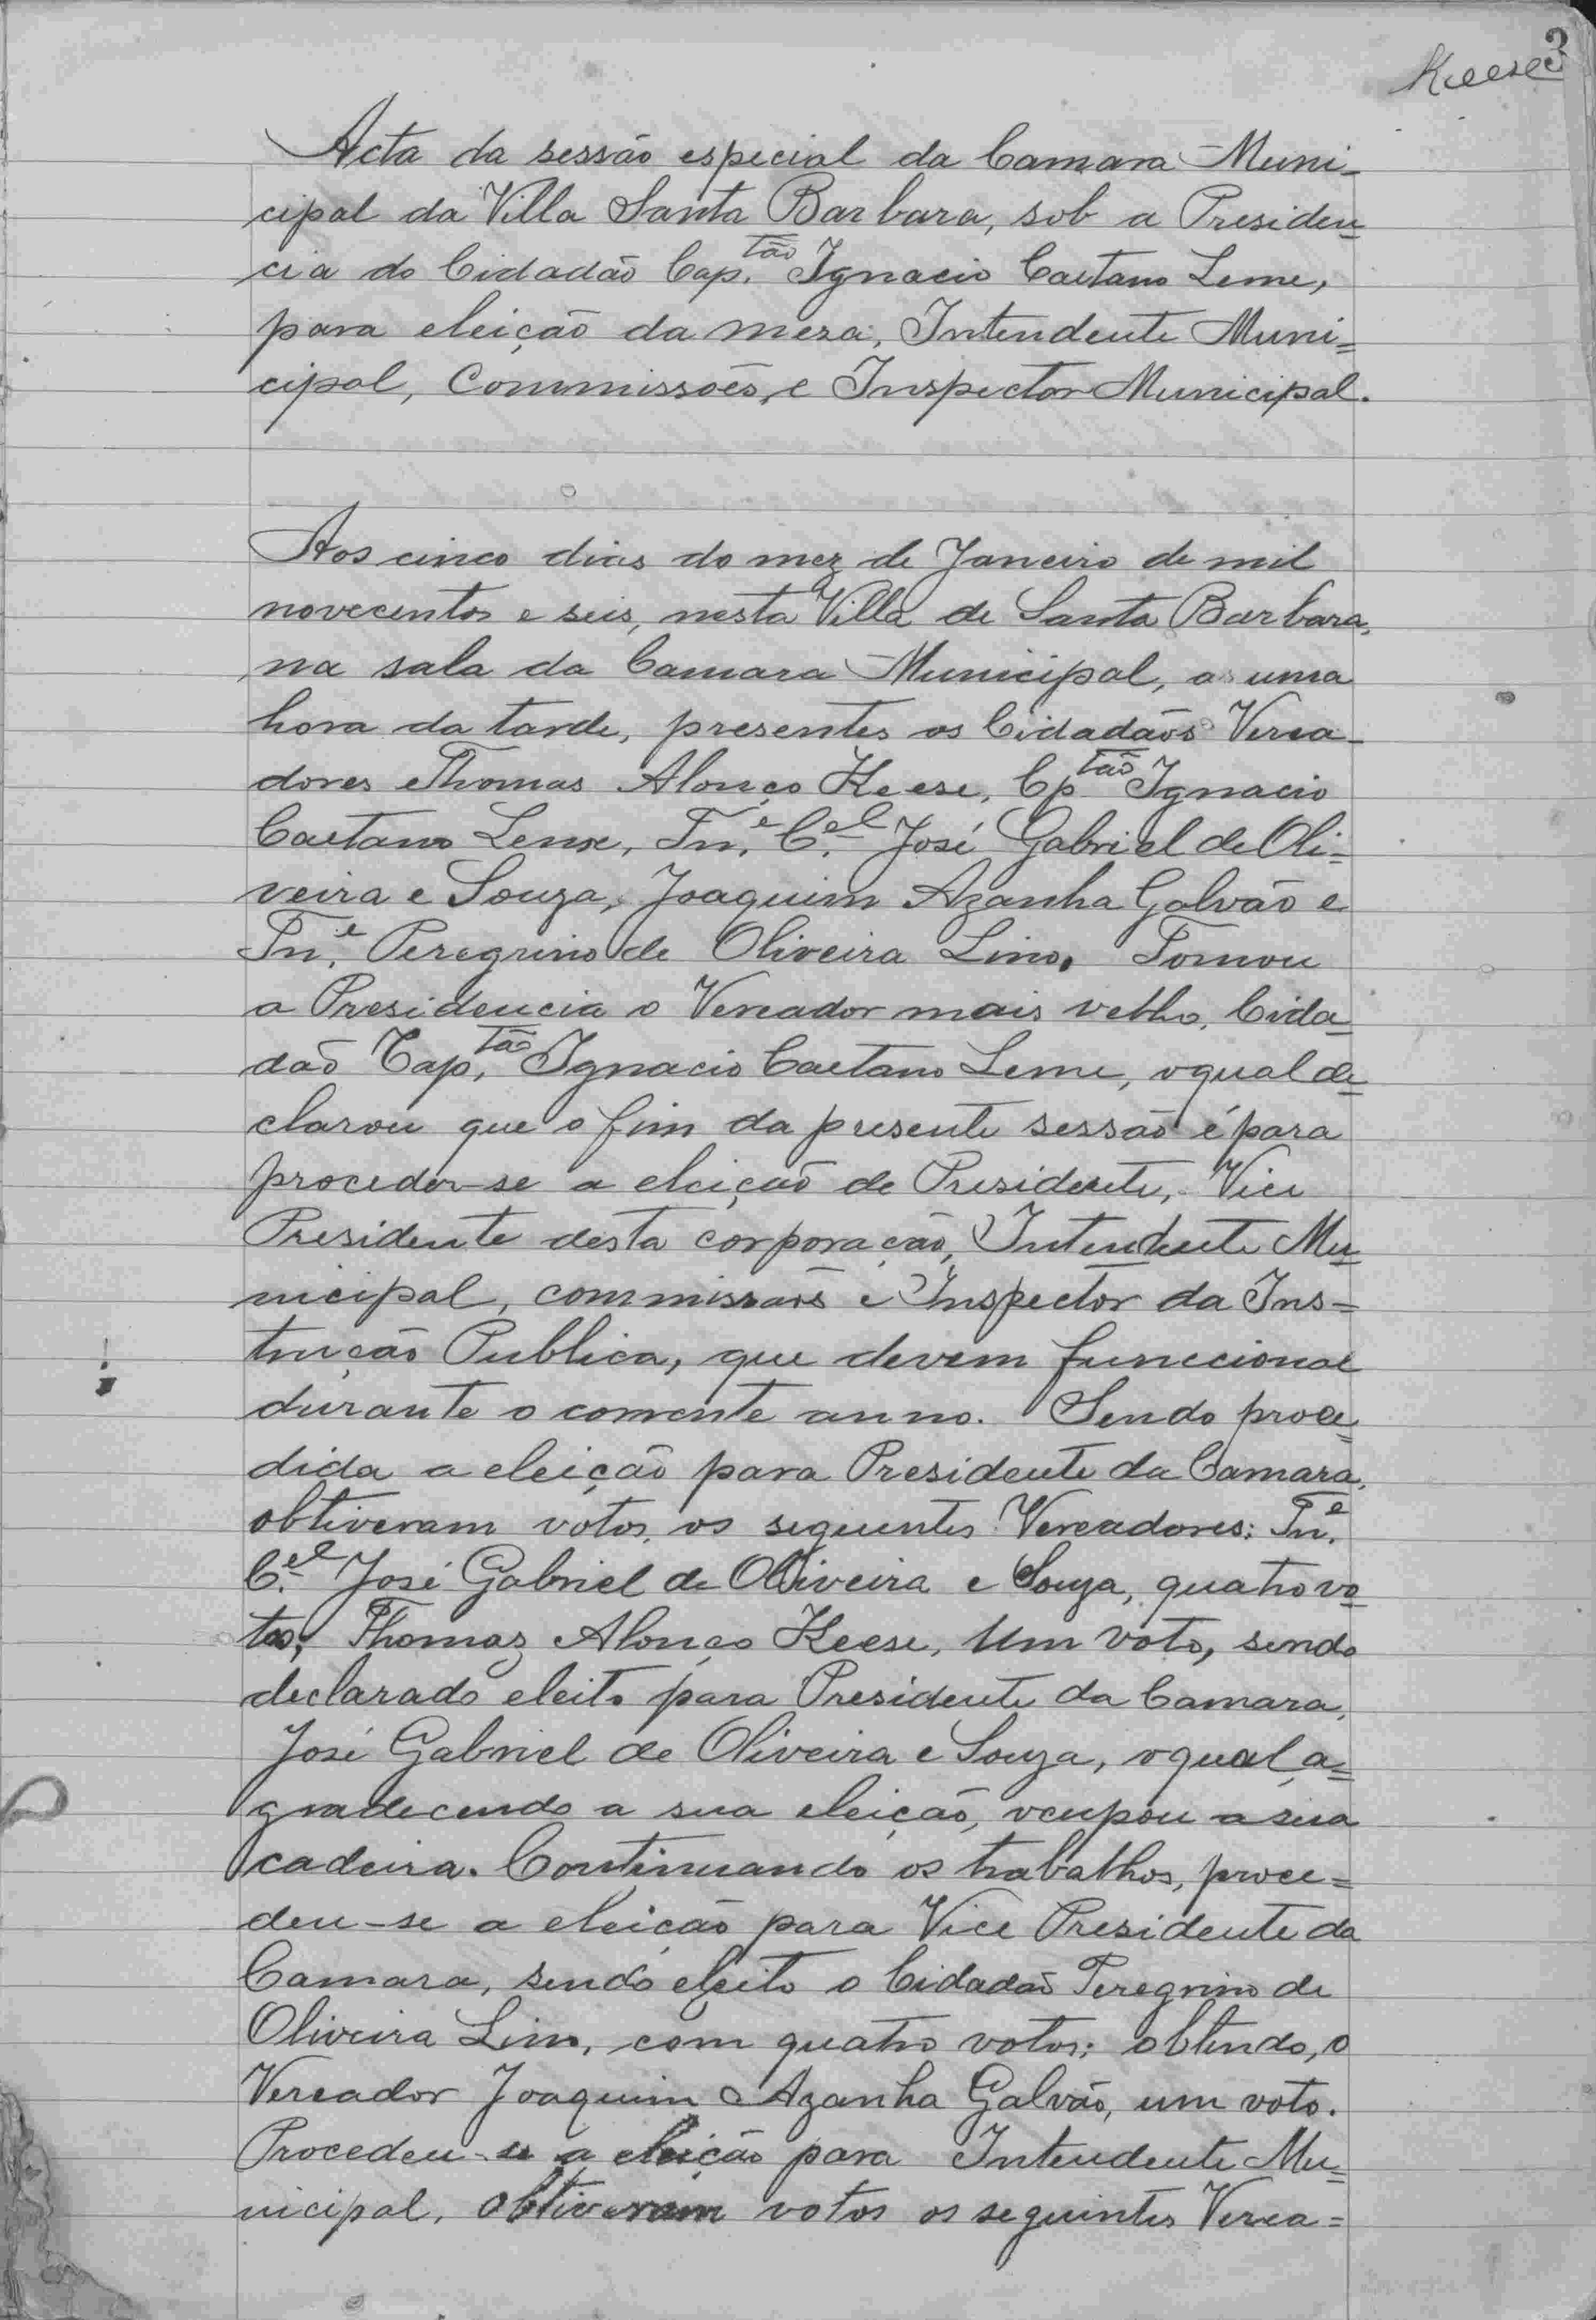 Keese 3
Acta da sessão especial da Camara Muni-
cipal da Villa Santa Barbara, sob a Presiden=
cia do Cidadão Cap.tão Ignacio Caetano Leme,
para eleição da meza, Intendente Muni=
cipal, Commissões, e Inspector Municipal.
Aos cinco dias do mez de Janeiro de mil
novecentos e seis, nesta Villa de Santa Barbara,
na sala da Camara Municipal, as uma
hora da tarde, presentes os Cidadãos Verea-
dores Thomas Alonço Keese, Cp.tão Ignacio
Caetano Leme, Tn.e C.el José Gabriel de Oli=
veira e Souza, Joaquim Azanha Galvão e
Tn.e Peregrino de Oliveira Lino. Tomou
a Presidencia o Vereador mais velho, Cida=
dão Cap.tão Ignacio Caetano Leme, o qual de=
clarou que o fim da presente sessão é para
proceder-se a eleição de Presidente, Vice
Presidente desta corporação, Intendente Mu=
nicipal, commissões e Inspector da Ins=
trucção Publica, que devem funccionar
durante o corrente anno. Sendo proce=
dida a eleição para Presidente da Camara,
obtiveram votos os seguintes Vereadores: Tn.e
C.el José Gabriel de Oliveira e Souza, quatro vo=
tos; Thomaz Alonço Keese, Um voto, sendo
declarado eleito para Presidente da Camara,
José Gabriel de Oliveira e Souza, o qual a=
gradecendo a sua eleição, occupou a sua
cadeira. Continuando os trabalhos, proce=
deu-se a eleição para Vice Presidente da
Camara, sendo eleito o Cidadão Peregrino de
Oliveira Lino, com quatro votos; obtendo, o
Vereador Joaquim Azanha Galvão, um voto.
Procedeu-se a eleição para Intendente Mu=
nicipal, obtiveram votos os seguintes Verea=